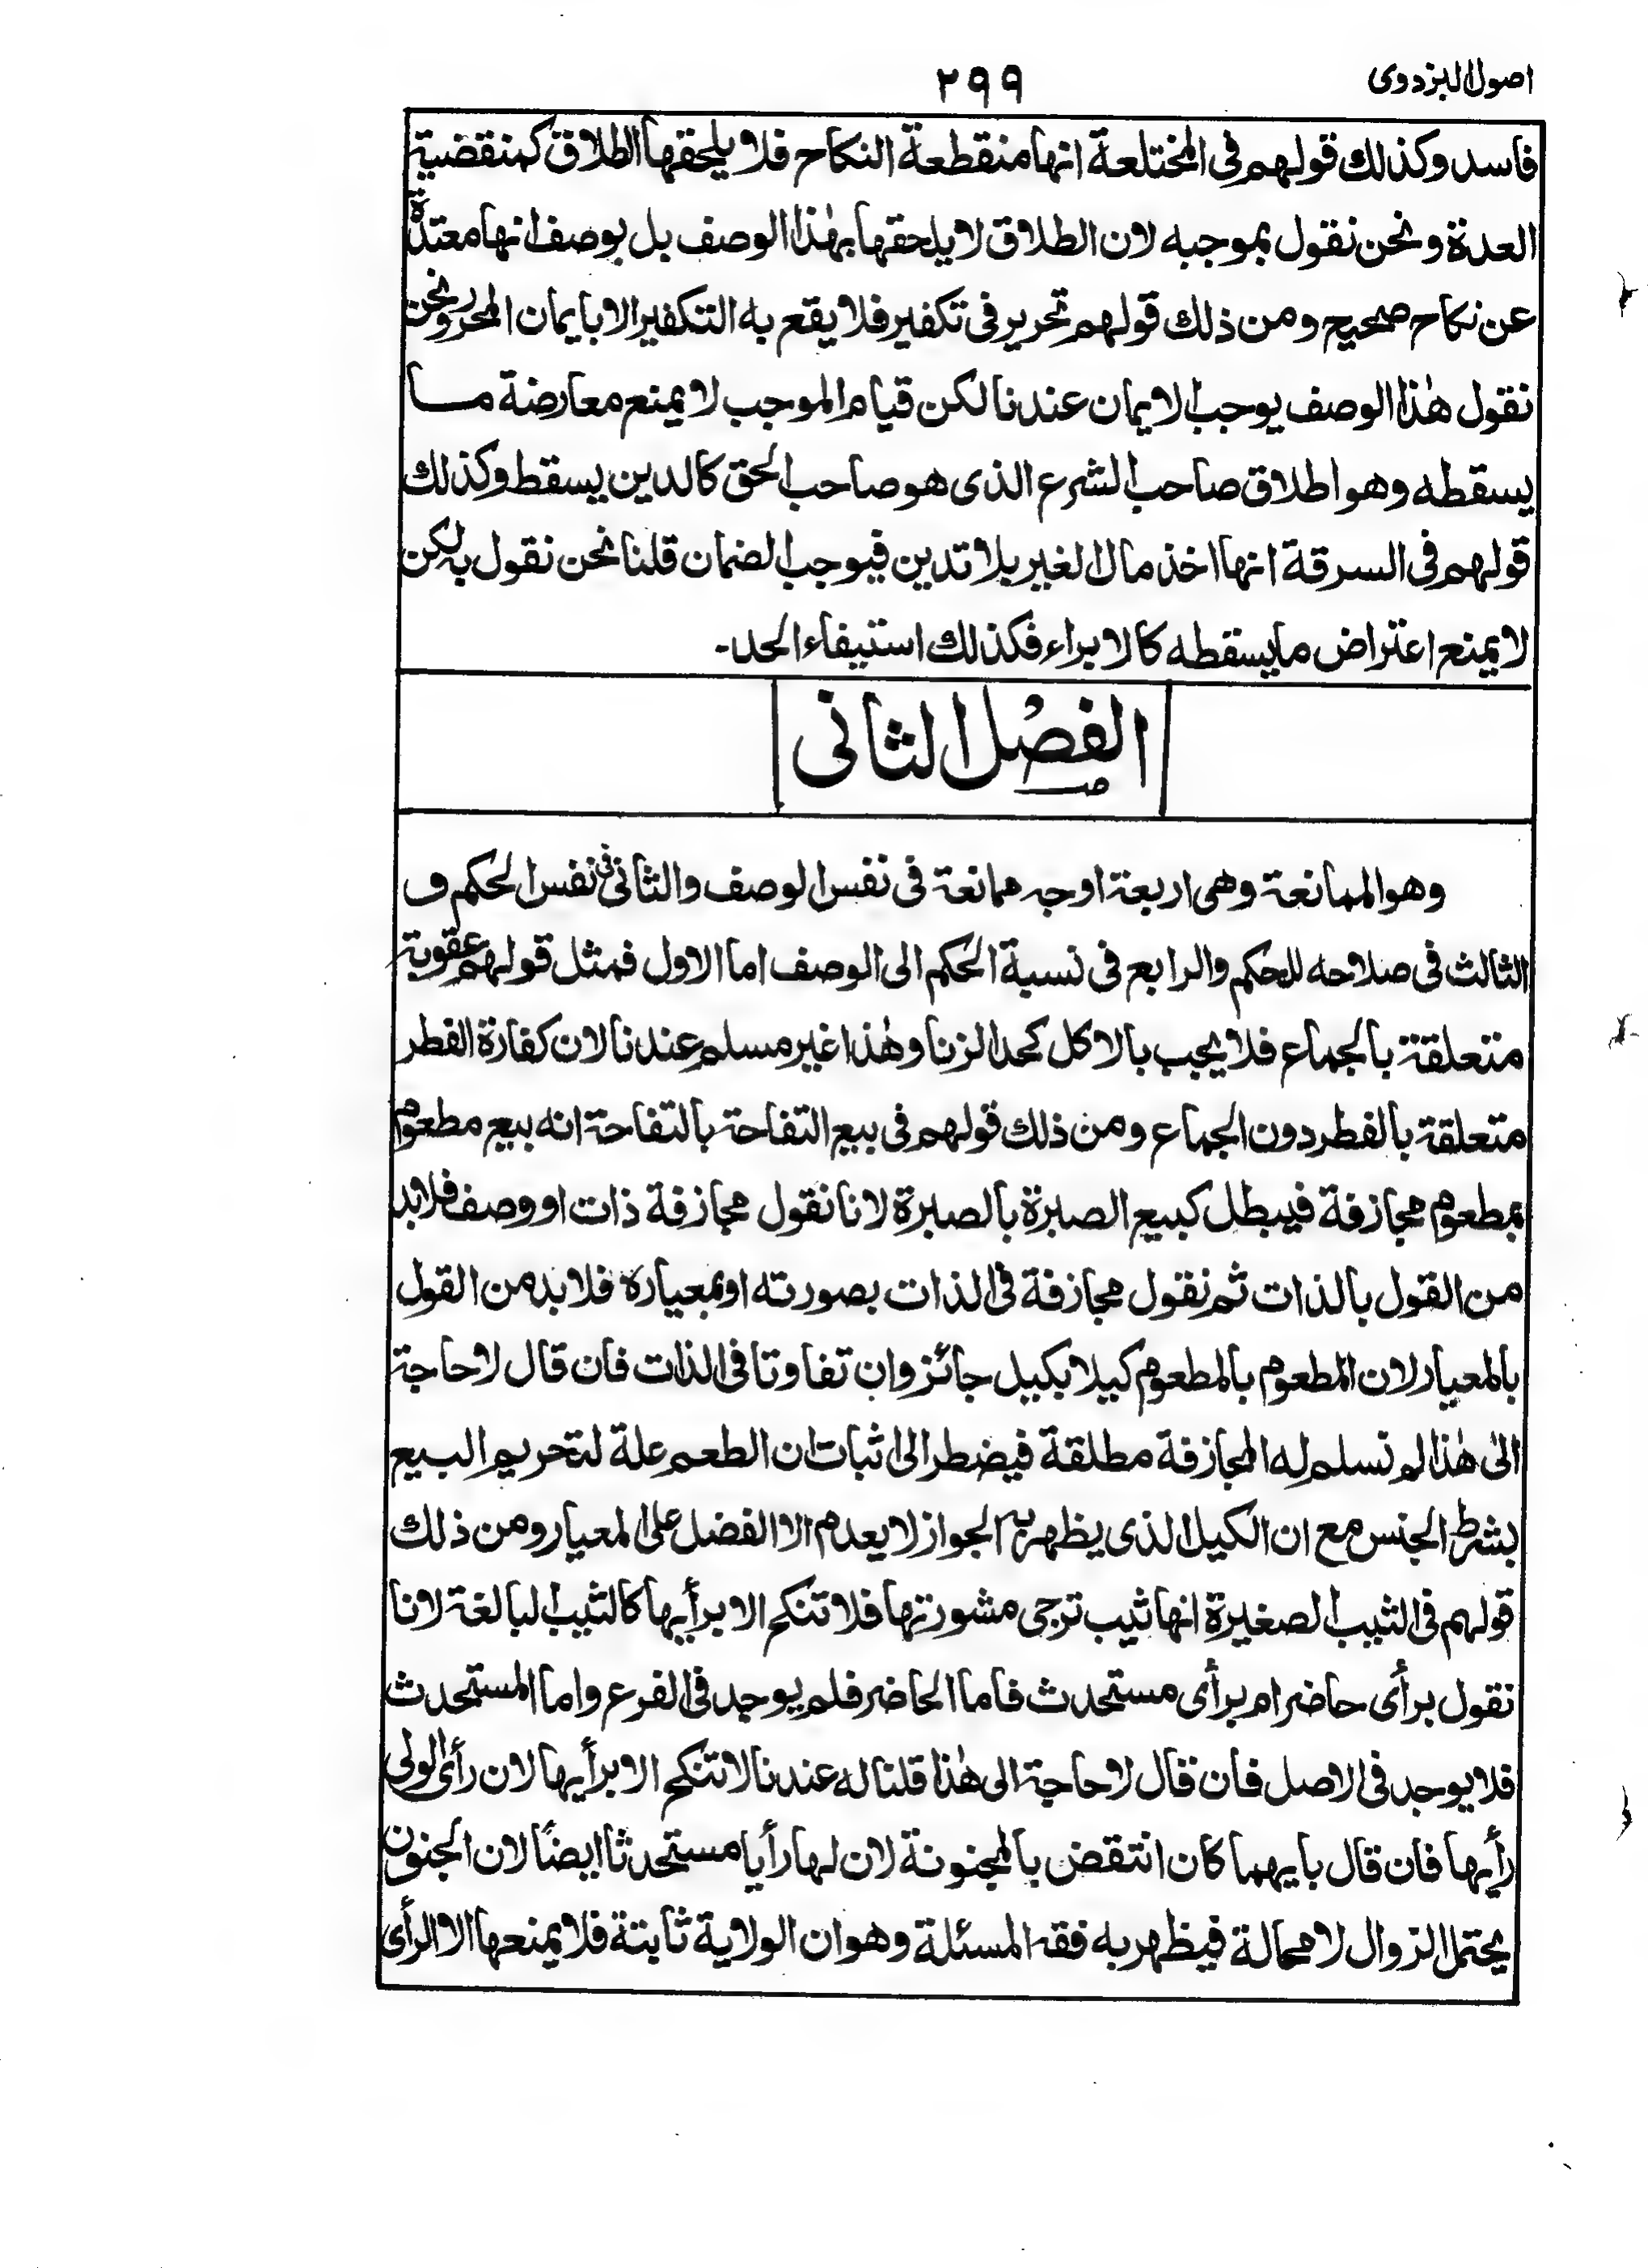 اصول البزدوى
٢٩٩
فاسد وكذلك قولهم فى المختلعة انها منقطعة النكاح فلا يلحقها الطلاق كمنقضية
العدة ونحن نقول بموجبه لان الطلاق لا يلحقها بهٰذا الوصف بل بوصف انها معتدة
عن نكاح صحيح ومن ذلك قولهم تحرير فى تكفير فلا يقع به التكفير الا بايمان المحرر ونحن
نقول هٰذا الوصف يوجب الايمان عندنا لكن قيام الموجب لا يمنع معارضة ما
يسقطه وهو اطلاق صاحب الشرع الذى هو صاحب الحق كالدين يسقط وكذلك
قولهم فى السرقة انها اخذ مال الغير بلا تدين فيوجب الضمان قلنا نحن نقول به لكن
لا يمنع اعتراض ما يسقطه كالابراء فكذلك استيفاء الحد۔
الفصل الثانى
وهو الممانعة وهى اربعة اوجه ممانعة فى نفس الوصف والثانى فى نفس الحكم و
الثالث فى صلاحه للحكم والرابع فى نسبة الحكم الى الوصف اما الاول فمثل قولهم عقوبة
متعلقة بالجماع فلا يجب بالاكل كحد الزنا وهٰذا غير مسلم عندنا لان كفارة الفطر
متعلقة بالفطر دون الجماع ومن ذلك قولهم فى بيع التفاحة بالتفاحة انه بيع مطعوم
بمطعوم مجازفة فيبطل كبيع الصبرة بالصبرة لانا نقول مجازفة ذات او وصف فلا بد
من القول بالذات ثم نقول مجازفة فى الذات بصورته او بمعياره فلا بد من القول
بالمعيار لان المطعوم بالمطعوم كيلا بكيل جائز وان تفاوتا فى الذات فان قال لا حاجة
الىٰ هٰذا لم تسلم له المجازفة مطلقة فيضطر الى اثبات ان الطعم علة لتحريم البيع
بشرط الجنس مع ان الكيل الذى يظهر به الجواز لا يعدم الا الفضل على المعيار ومن ذلك
قولهم فى الثيب الصغيرة انها ثيب ترجى مشورتها فلا تنكح الا برأيها كالثيب البالغة لانا
نقول برأى حاضر ام برأى مستحدث فاما الحاضر فلم يوجد فى الفرع واما المستحدث
فلا يوجد فى الاصل فان قال لا حاجة الى هٰذا قلنا له عندنا لا تنكح الا برأيها لان رأى الولى
رأيها فان قال بايهما كان انتقض بالمجنونة لان لها رأيا مستحدثا ايضًا لان الجنون
يحتمل الزوال لا محالة فيظهر به فقه المسئلة وهو ان الولاية ثابتة فلا يمنعها الا الرأى